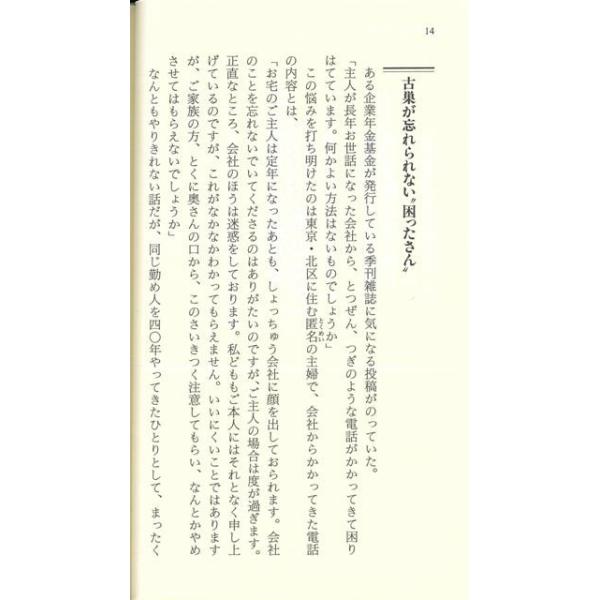 14
古巣が忘れられない〝困ったさん〟
ある企業年金基金が発行している季刊雑誌に気になる投稿がのっていた。
「主人が長年お世話になった会社から、とつぜん、つぎのような電話がかかってきて困り
はてています。何かよい方法はないものでしょうか」
この悩みを打ち明けたのは東京・北区に住む匿名の主婦で、会社からかかってきた電話
の内容とは、
「お宅のご主人は定年になったあとも、しょっちゅう会社に顔を出しておられます。会社
のことを忘れないでいてくださるのはありがたいのですが、ご主人の場合は度が過ぎます。
正直なところ、会社のほうは迷惑をしております。私どももご本人にはそれとなく申し上
げているのですが、これがなかなかわかってもらえません。いいにくいことではあります
が、ご家族の方、とくに奥さんの口から、このさいきつく注意してもらい、なんとかやめ
させてはもらえないでしょうか」
なんともやりきれない話だが、同じ勤め人を四〇年やってきたひとりとして、まったく